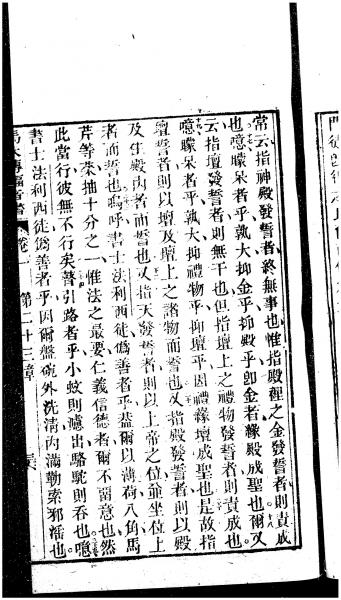 常云指神殿發誓者終無事也惟指殿裡之金發誓者則責成
也噫矇呆者乎孰大抑金乎抑殿乎卽金者緣殿成聖也爾又
云指壇發誓者則無干也但指壇上之禮物發誓者則責成也
噫矇呆者乎孰大抑禮物乎抑壇乎因禮緣壇成聖也是故指
壇誓者則以壇及壇上之諸物而誓也又指殿發誓者則以殿
及在殿內者而誓也又指天發誓者則以上帝之位並坐位上
者而誓也嗚呼書士法利西徒僞善者乎葢爾以薄荷八角馬
芹等菜抽十分之一惟法之最要仁義信德者爾不需意也然
此當行彼無不行矣瞽引路者乎小蚊則濾出駱駝則吞也噫
書士法利西徒僞善者乎因爾盤碗外洗淸內滿勒索邪淫也
卷一 第二十三章